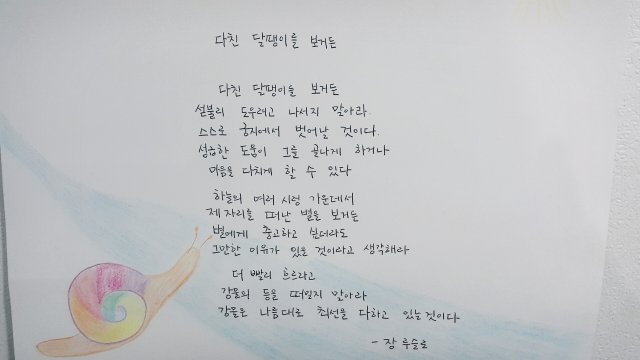 다친 달팽이를 보거든
다친 달팽이를 보거든
섣불리 도우려고 나서지 말아라.
스스로 궁지에서 벗어날 것이다.
성급한 도움이 그를 골나게 하거나
마음을 다치게 할 수 있다
하늘의 여러 시렁 가운데서
제 자리를 떠난 별을 보거든
별에게 충고하고 싶더라도
그만한 이유가 있을 것이라고 생각해라
더 빨리 흐르라고
강물의 등을 떠밀지 말아라
강물은 나름대로 최선을 다하고 있는것이다
- 장 루슬로